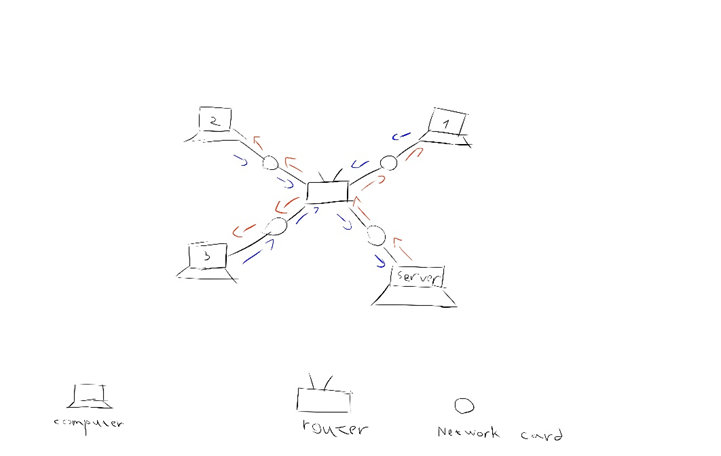 2
1
3
server
computer
router
Network card